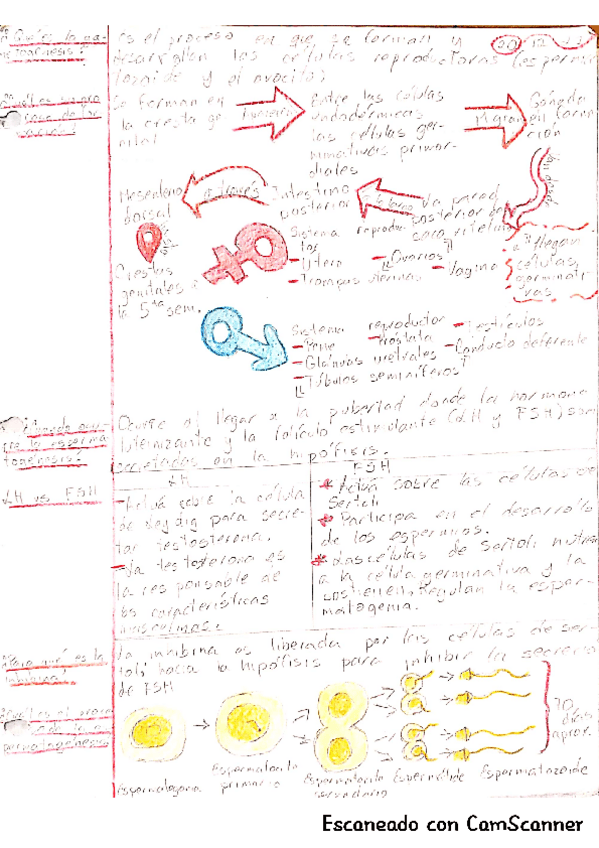 ¿Qué es la ga-
metogénesis?
es el proceso en que se forman y
desarrollan las células reproductoras (esperma
tozoide y el ovocito)
Se forman en
la cresta ge
nital
Entre las células
endodérmicas
las células ger-
minativas primor-
diales
Migran
Gónada
en
ción
Van donde
Mesenterio
dorsal
a través
Intestino
posterior
La pared
posterior del
saco vitelino
llegan
células
germinati-
vas
Crestas
genitales a
la 5ta sem.
Sistema reproduc
tor
- Útero
- Ovarios
- Trompas uterinas
- Vagina
Sistema reproductor
- Testículos
- Pene
- Próstata
- Glándulas uretrales
- Conducto deferente
Túbulos seminíferos
¿Cuándo ocu-
rre la esperma
togénesis?
Ocurre al llegar a la pubertad donde la hormona
luteinizante y la folículo estimulante (LH y FSH) son
secretadas en la hipófisis.
LH vs FSH
LH
- Actúa sobre la célula
de Leydig para secre-
tar testosterona.
- La testosterona es
la responsable de
las características
masculinas.
FSH
* Actúa sobre las células de
Sertoli
* Participa en el desarrollo
de los espermios.
* Las células de Sertoli nutren
a la célula germinativa y la
sostienen. Regulan la esper-
matogenia.
¿Para qué es la
inhibina?
La inhibina es liberada por las células de Ser
toli hacia la hipófisis para inhibir la secreción
de FSH
¿Cuál es el proceso
de la es-
permatogénesis
Espermatogonia
Espermatocito
primario
Espermatocito
secundario
Espermátide
Espermatozoide
70
días
aprox.
Escaneado con CamScanner